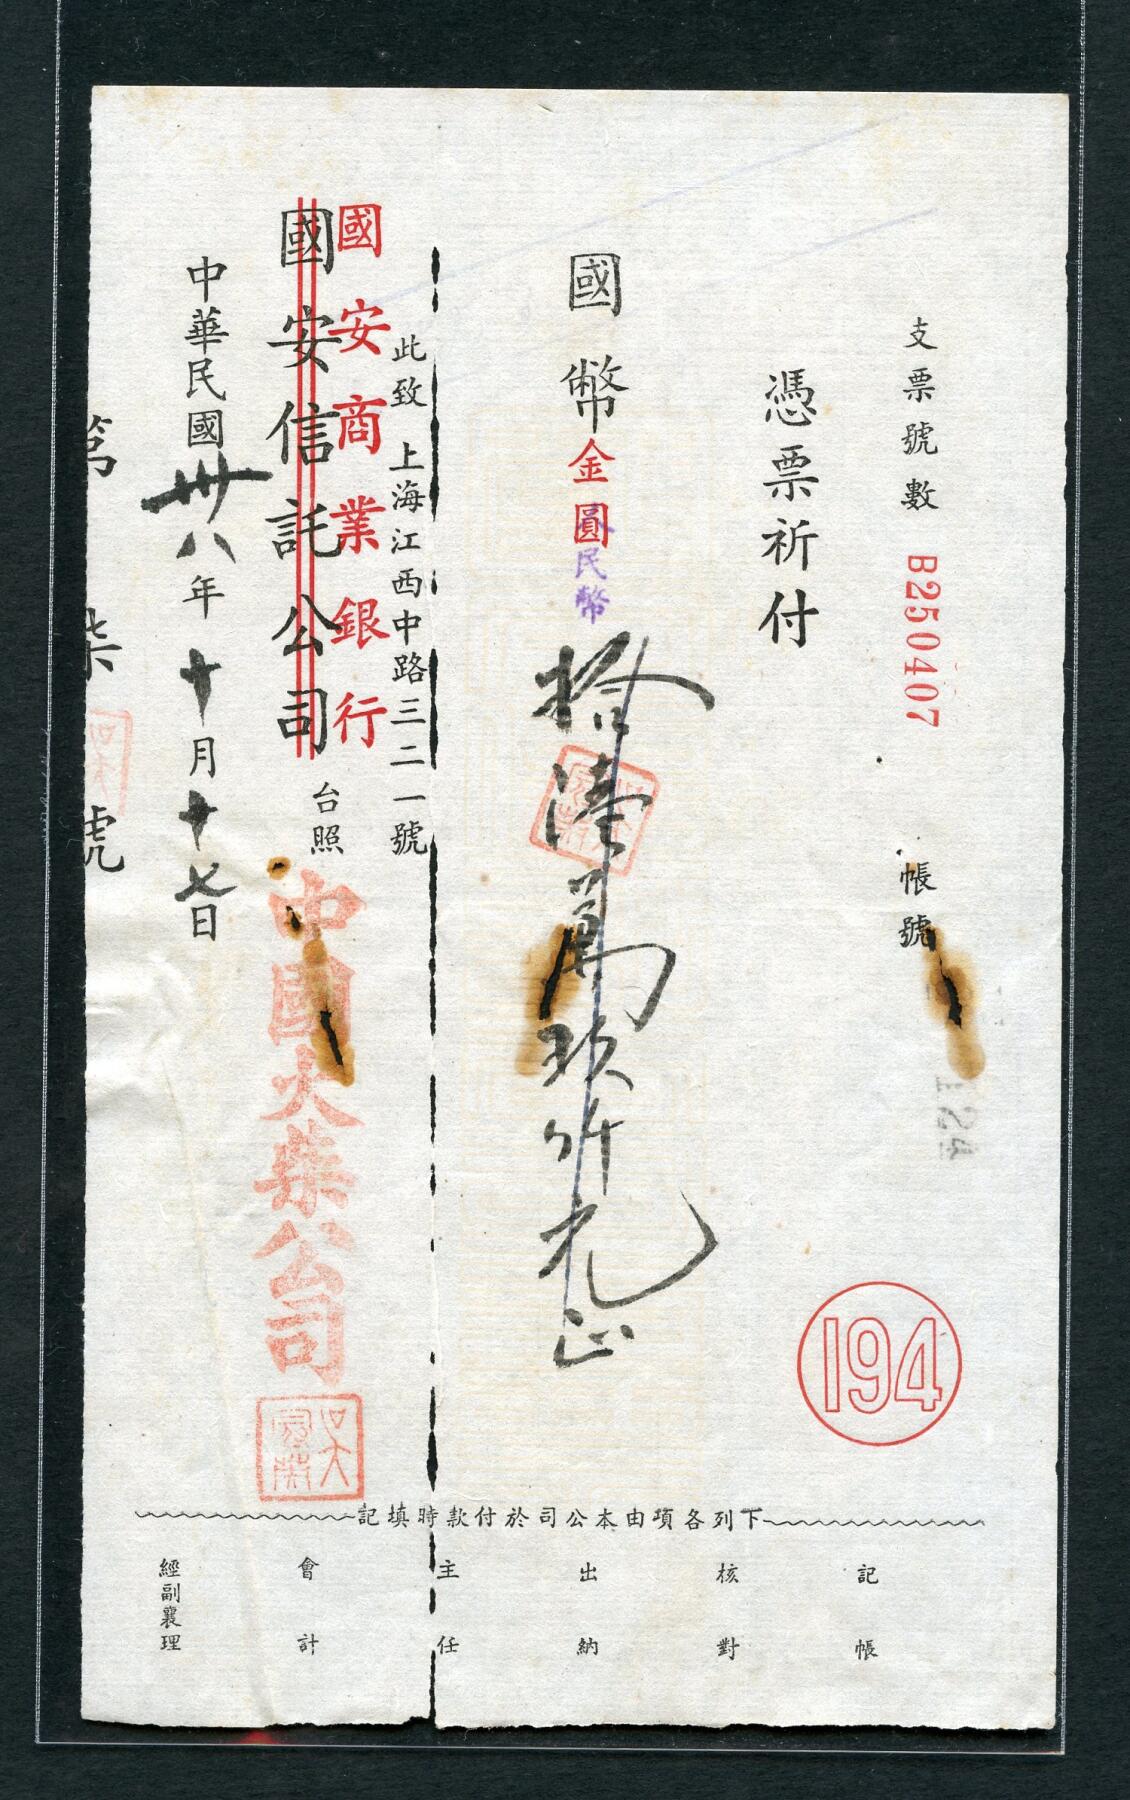 支票號數 B250407 帳號
124
194
憑票祈付
國幣金圓
民幣
拾陸萬玖仟元正
此致 上海江西中路三二一號
國安商業銀行
國安信託公司 台照
中國火柴公司
中華民國卅八年十月十七日
柒 號
下列各項由本公司於付款時填記
記帳
核對
出納
主任
會計
經副襄理